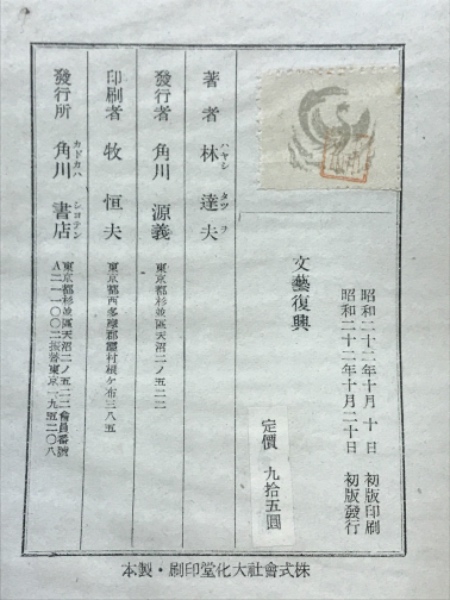 昭和二十二年十月　十　日　初版印刷
昭和二十二年十月二十日　初版發行
文藝復興
定價　九拾五圓
著者　林　達夫
ハヤシ　タツヲ
發行者　角川　源義
東京都杉並區天沼二ノ五二二
印刷者　牧　恒夫
東京都西多摩郡霞村根ケ布三八五
發行所　角川　書店
カドカハ　シヨテン
東京都杉並區天沼二ノ五二二會員番號
A二一一〇〇二振替東京一九五二〇八
株式會社大化堂印刷・製本